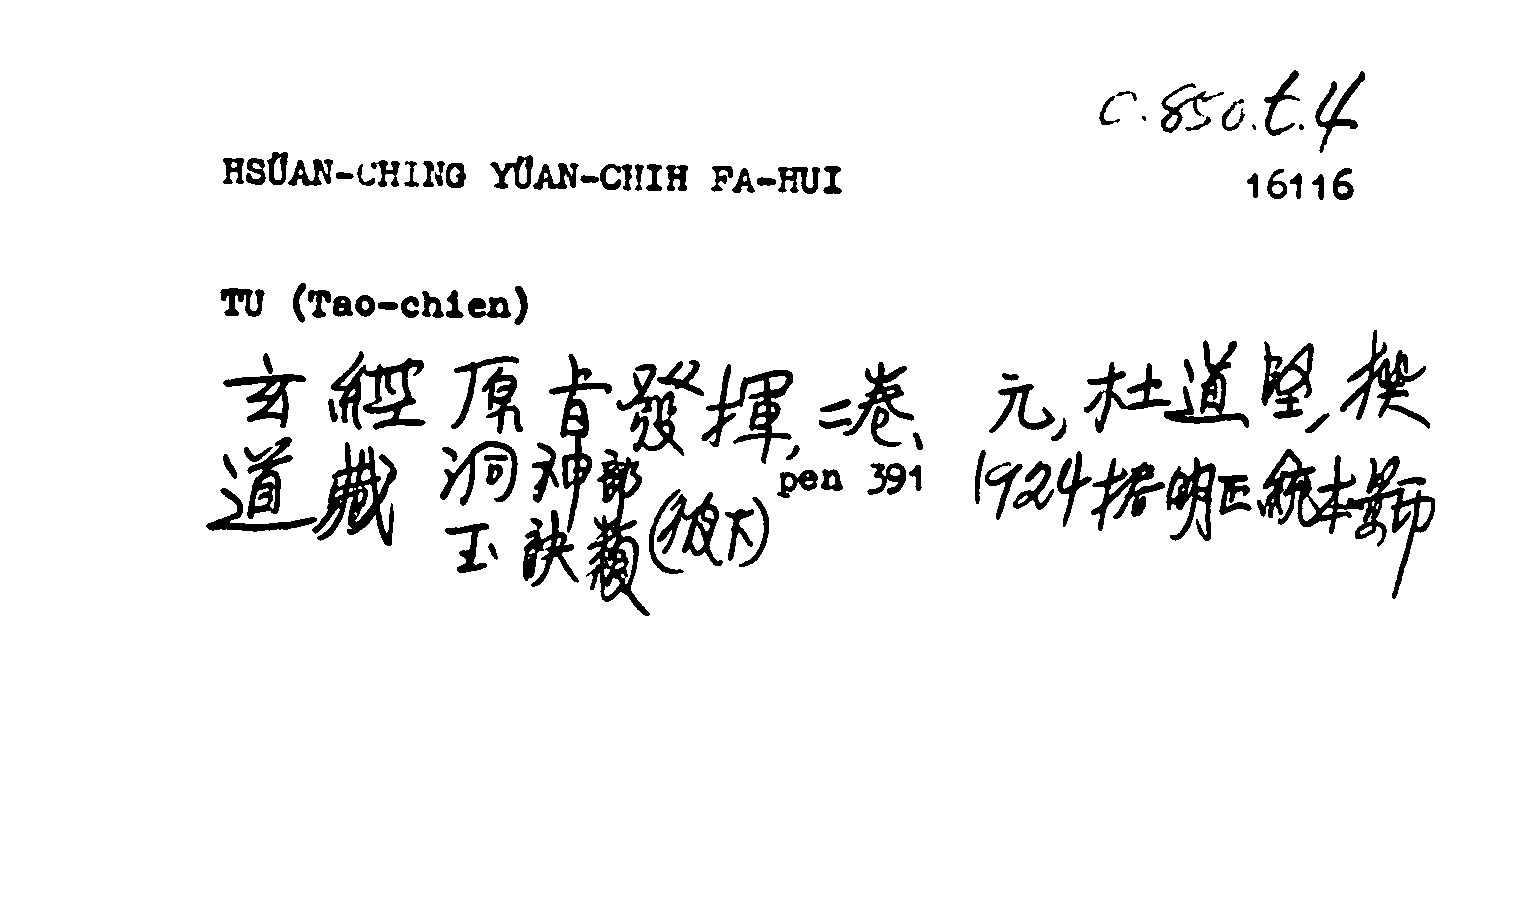 C.850.t.4
HSÜAN-CHING YÜAN-CHIH FA-HUI 16116
TU (Tao-chien)
玄經原旨發揮,二卷、 元,杜道堅,撰
道藏 洞神部 pen 391 1924據明正統本影印
玉訣類(彼下)